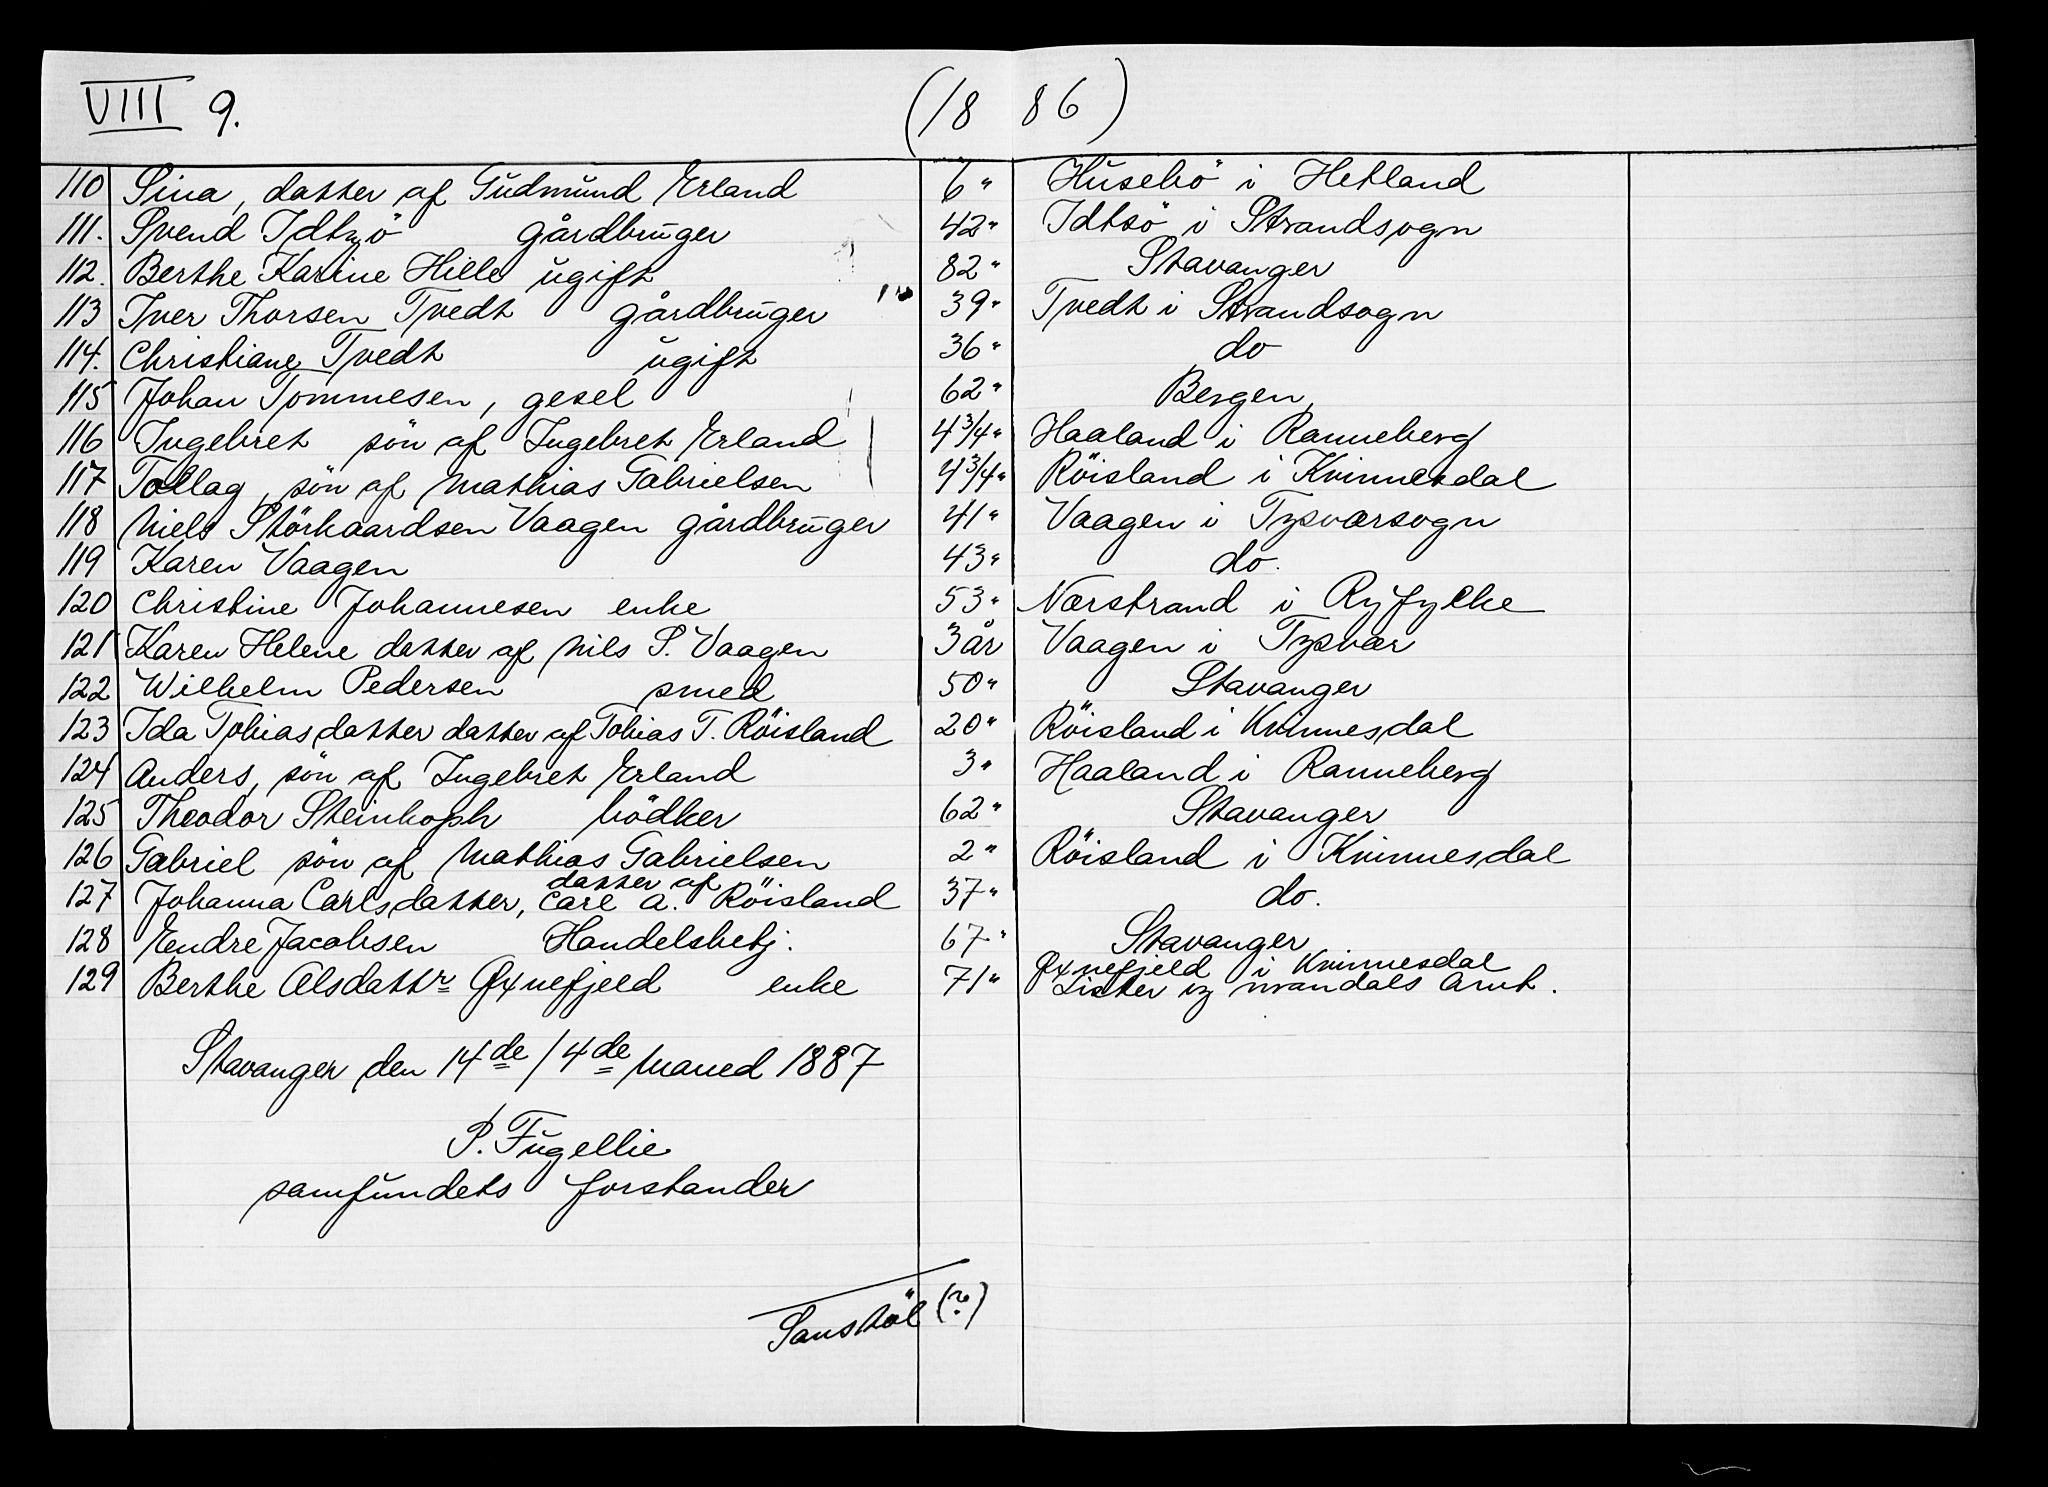 VIII 9. (18 86)
110 Sina, datter af Gudmund Erland 6" Husebö i Hetland
111. Svend Idtzö gårdbruger 42" Idtsö i Strandsogn
112. Berthe Karine Hille ugift 82" Stavanger
113 Iver Thorsen Tvedt gårdbruger 39" Tvedt i Strandsogn
114. Christiane Tvedt ugift 36" do
115 Johan Tommesen, gesel 62" Bergen,
116 Ingebret sön af Ingebret Erland 4 3/4" Haaland i Ranneberg
117 Tollag, sön af Mathias Gabrielsen 4 3/4" Röisland i Kvinnesdal
118 Niels Störkaardsen Vaagen gårdbruger 41" Vaagen i Tysværsogn
119 Karen Vaagen 43" do.
120 Christine Johannesen enke 53" Nærstrand i Ryfylke
121 Karen Helene datter af Nils S. Vaagen 3 år Vaagen i Tysvær
122 Wilhelm Pedersen smed 50" Stavanger
123 Ida Tobiasdatter datter af Tobias T. Röisland 20" Röisland i Kvinnesdal
124 Anders, sön af Ingebret Erland 3" Haaland i Ranneberg
125 Theodor Steinkoph bödker 62" Stavanger
126 Gabriel sön af Mathias Gabrielsen 2" Röisland i Kvinnesdal
127 Johanna Carlsdatter, datter af Carl A. Röisland 37" do.
128 Endre Jacobsen Handelsbetj. 67" Stavanger
129 Berthe Alsdattr Øxnefjeld enke 71" Øxnefjeld i Kvinnesdal
Lister og Mandals Amt.
Stavanger den 14de/4de Maned 1887
P. Fugellie
samfundets forstander
Sanstöl (?)